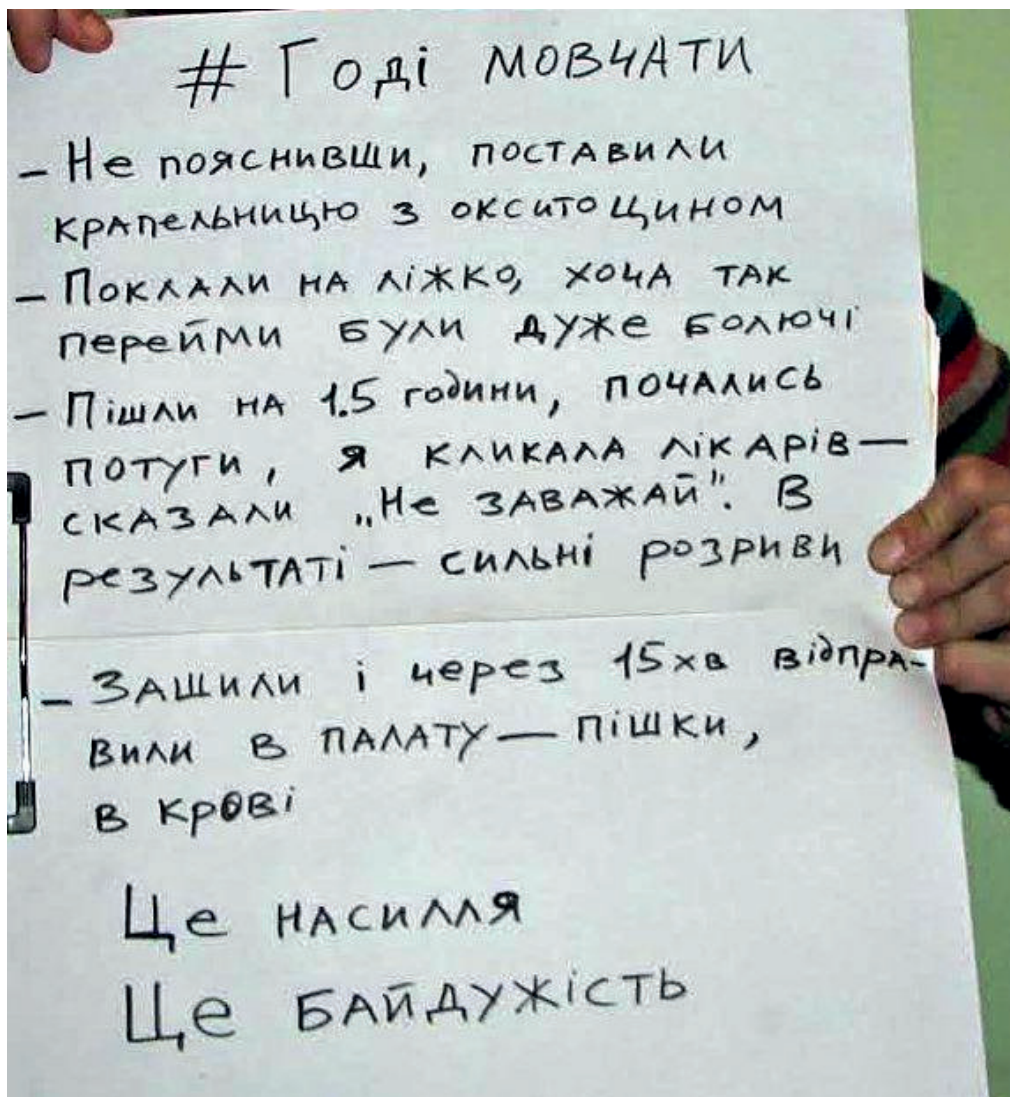 # Годі мовчати
– Не пояснивши, поставили
крапельницю з окситоцином
– Поклали на ліжко, хоча так
перейми були дуже болючі
– Пішли на 1.5 години, почались
потуги, я кликала лікарів –
сказали „Не заважай". В
результаті – сильні розриви
– Зашили і через 15хв відпра-
вили в палату – пішки,
в крові
Це насилля
Це байдужість